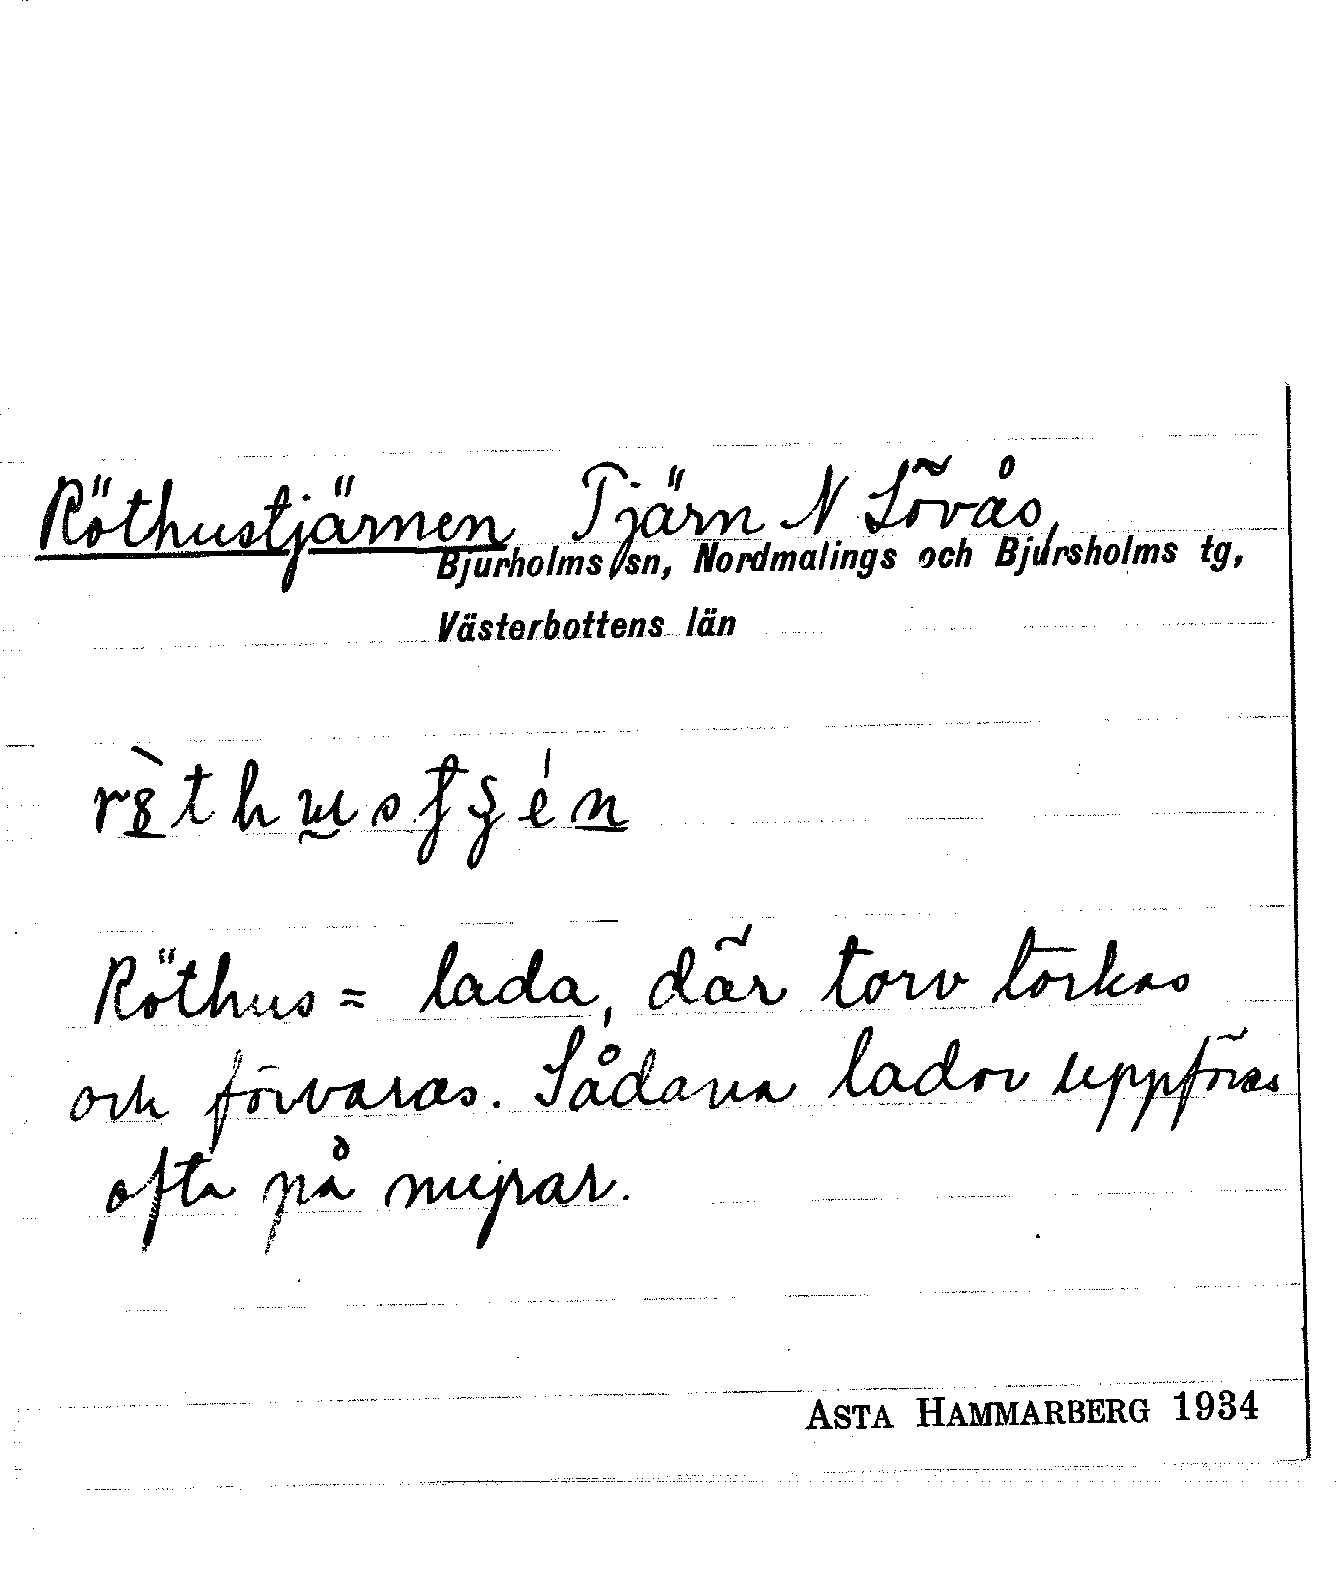 Röthustjärnen Tjärn N Lövås,
Bjurholms sn, Nordmalings och Bjursholms tg,
Västerbottens län
Röthus = lada, där torv torkas
och förvaras. Sådana lador uppföras
ofta på myrar.
ASTA HAMMARBERG 1934